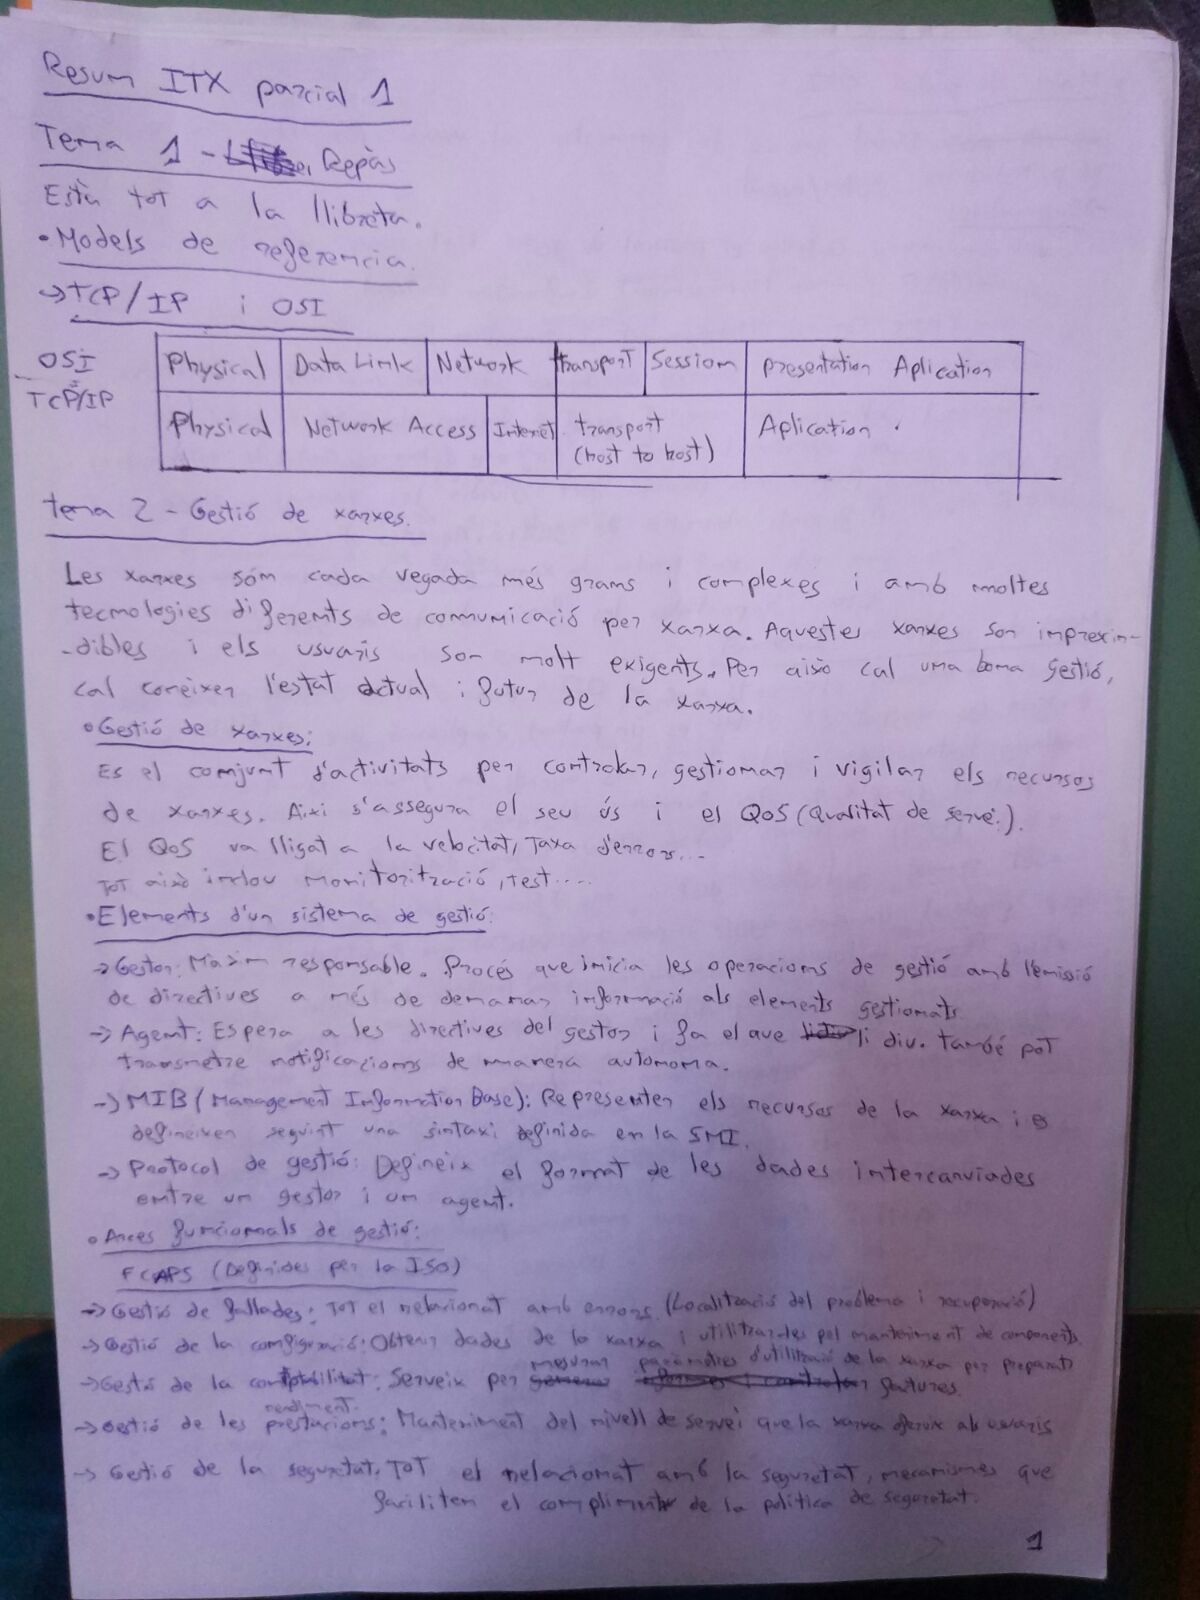 Resum ITX parcial 1
Tema 1 - Repàs
Està tot a la llibreta.
• Models de referencia.
→ TCP/IP i OSI
OSI Physical Data Link Network transport Session Presentation Aplication
TCP/IP Physical Network Access Internet transport (host to host) Aplication
tema 2 - Gestió de xarxes.
Les xarxes són cada vegada més grans i complexes i amb moltes
tecnologies diferents de comunicació per xarxa. Aquestes xarxes son imprexin-
-dibles i els usuaris son molt exigents. Per això cal una bona gestió,
cal conèixer l'estat actual i futur de la xarxa.
• Gestió de xarxes:
Es el conjunt d'activitats per controlar, gestionar i vigilar els recursos
de xarxes. Aixi s'assegura el seu ús i el QoS (Qualitat de servei).
El QoS va lligat a la velocitat, Taxa d'errors...
Tot això inclou monitorització, test....
• Elements d'un sistema de gestió:
→ Gestor: Màxim responsable. Procés que inicia les operacions de gestió amb l'emissió
de directives a més de demanar informació als elements gestionats.
→ Agent: Espera a les directives del gestor i fa el que li diu. també pot
transmetre notificacions de manera autonoma.
→ MIB (Management Information Base): Representen els recursos de la xarxa i es
defineixen seguint una sintaxi definida en la SMI.
→ Protocol de gestió: Defineix el format de les dades intercanviades
entre un gestor i un agent.
• Arees funcionals de gestió:
FCAPS (Definides per la ISO)
→ Gestió de fallades: Tot el relacionat amb errors (Localització del problema i recuperació)
→ Gestió de la configuració: Obtenir dades de la xarxa i utilitzar-les pel manteniment de components.
→ Gestió de la comptabilitat: Serveix per mesurar paràmetres d'utilització de la xarxa per preparar factures.
→ Gestió de les prestacions: rendiment. Manteniment del nivell de servei que la xarxa ofereix als usuaris
→ Gestió de la seguretat. Tot el relacionat amb la seguretat, mecanismes que
faciliten el compliment de la politica de seguretat.
1